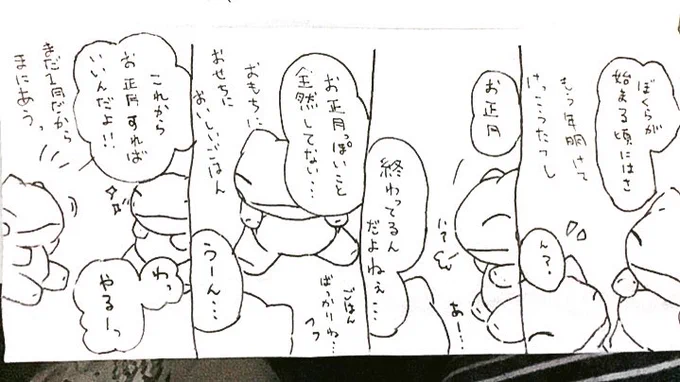 ぼくらが
始まる頃にはさ
もう年明けて
けっこうたつし
ん?
お正月
終わってるん
だよねぇ…
あー…
お正月っぽいこと
全然してない…
おもちに
おせちに
おいしいごはん
ごはん
ばっかりね…
うーん…
これから
お正月すれば
いいんだよ!!
まだ1月だから
まにあうっ
わっ
やるーっ